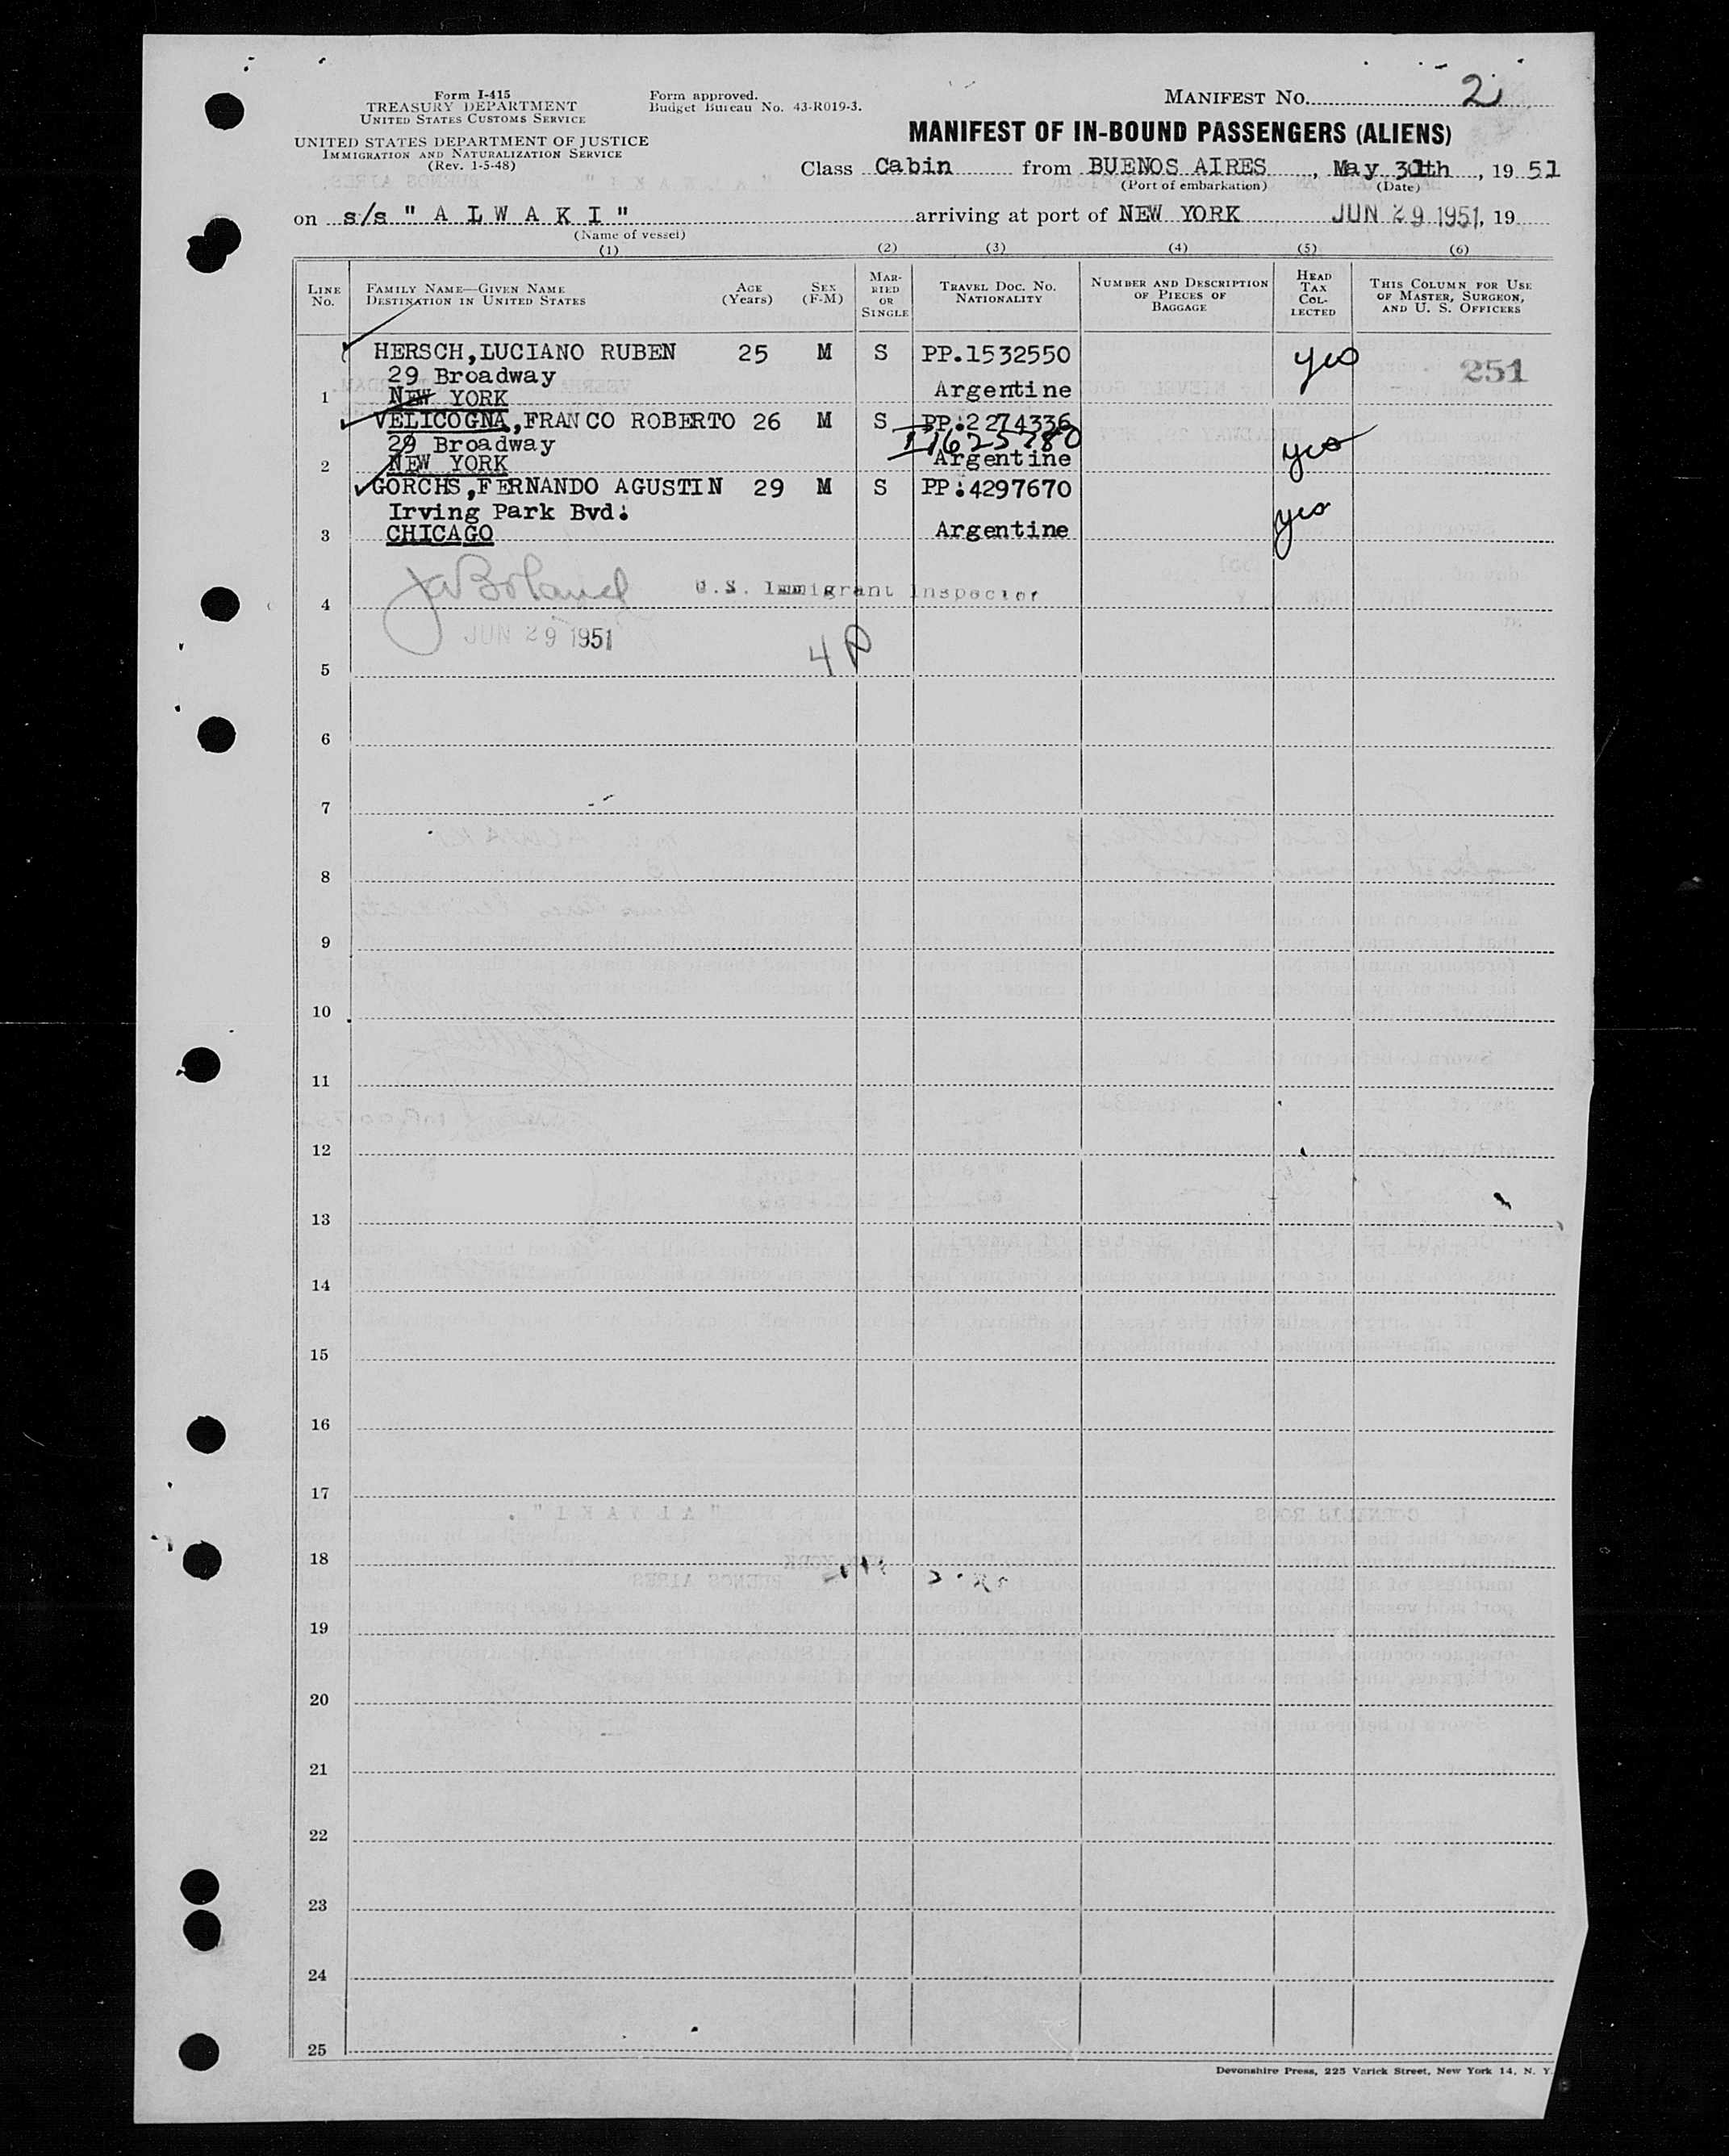 Form I-415
TREASURY DEPARTMENT
UNITED STATES CUSTOMS SERVICE
UNITED STATES DEPARTMENT OF JUSTICE
IMMIGRATION AND NATURALIZATION SERVICE
(Rev. 1-5-48)
Form approved.
Budget Bureau No. 43-R019-3.
MANIFEST NO. 2
MANIFEST OF IN-BOUND PASSENGERS (ALIENS)
Class Cabin from BUENOS AIRES, May 30th, 19 51
(Port of embarkation) (Date)
on s/s " A L W A K I " arriving at port of NEW YORK JUN 29 1951, 19
(Name of vessel)
(1) (2) (3) (4) (5) (6)
LINE No. FAMILY NAME—GIVEN NAME DESTINATION IN UNITED STATES AGE (Years) SEX (F-M) MARRIED OR SINGLE TRAVEL DOC. NO. NATIONALITY NUMBER AND DESCRIPTION OF PIECES OF BAGGAGE HEAD TAX COLLECTED THIS COLUMN FOR USE OF MASTER, SURGEON, AND U. S. OFFICERS
HERSCH,LUCIANO RUBEN 25 M S PP.1532550 yes 251
29 Broadway
1 NEW YORK Argentine
VELICOGNA,FRANCO ROBERTO 26 M S PP.2274336
29 Broadway I1625780 yes
2 NEW YORK Argentine
GORCHS,FERNANDO AGUSTIN 29 M S PP.4297670
Irving Park Bvd. yes
3 CHICAGO Argentine
JW Boland U.S. Immigrant Inspector
4
JUN 29 1951
5
6
7
8
9
10
11
12
13
14
15
16
17
18
19
20
21
22
23
24
25
Devonshire Press, 225 Varick Street, New York 14, N. Y.